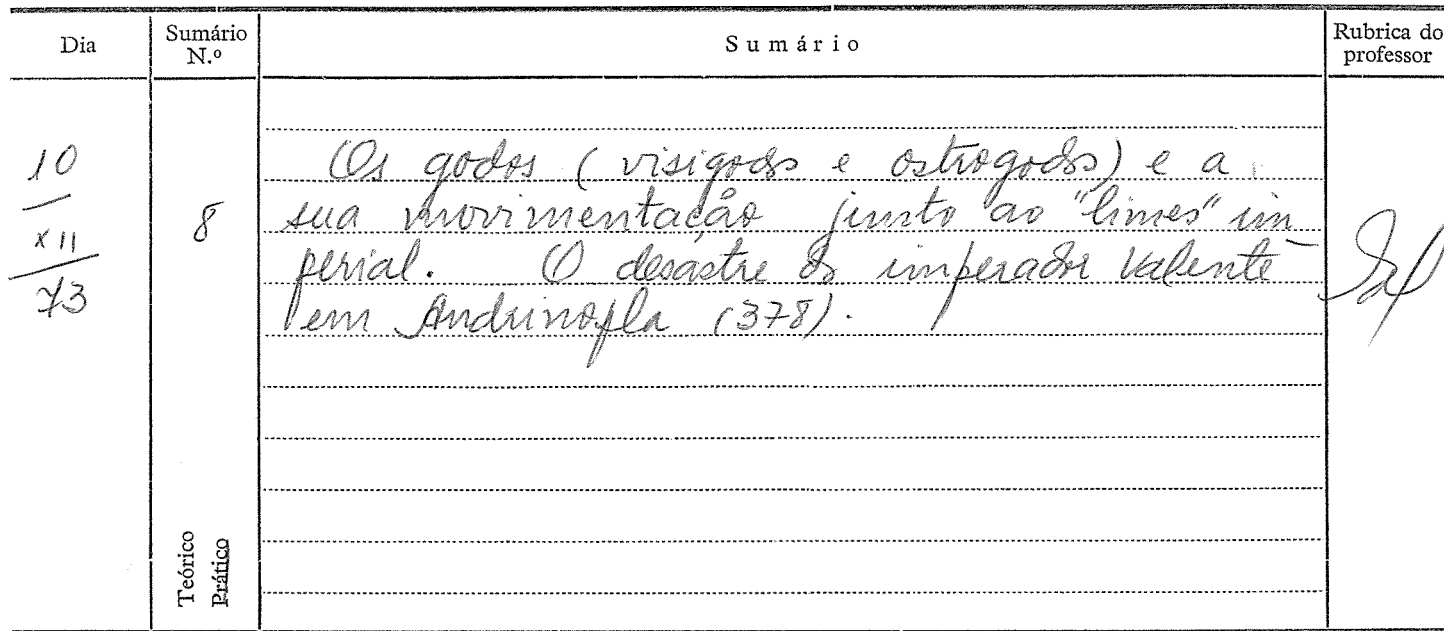 Dia
Sumário N.º
Sumário
Rubrica do professor
10
XII
73
8
Os godos (visigodos e ostrogodos) e a
sua movimentação junto ao "limes" im-
perial. O desastre do imperador Valente
em Andrinopla (378).
Teórico
Prático